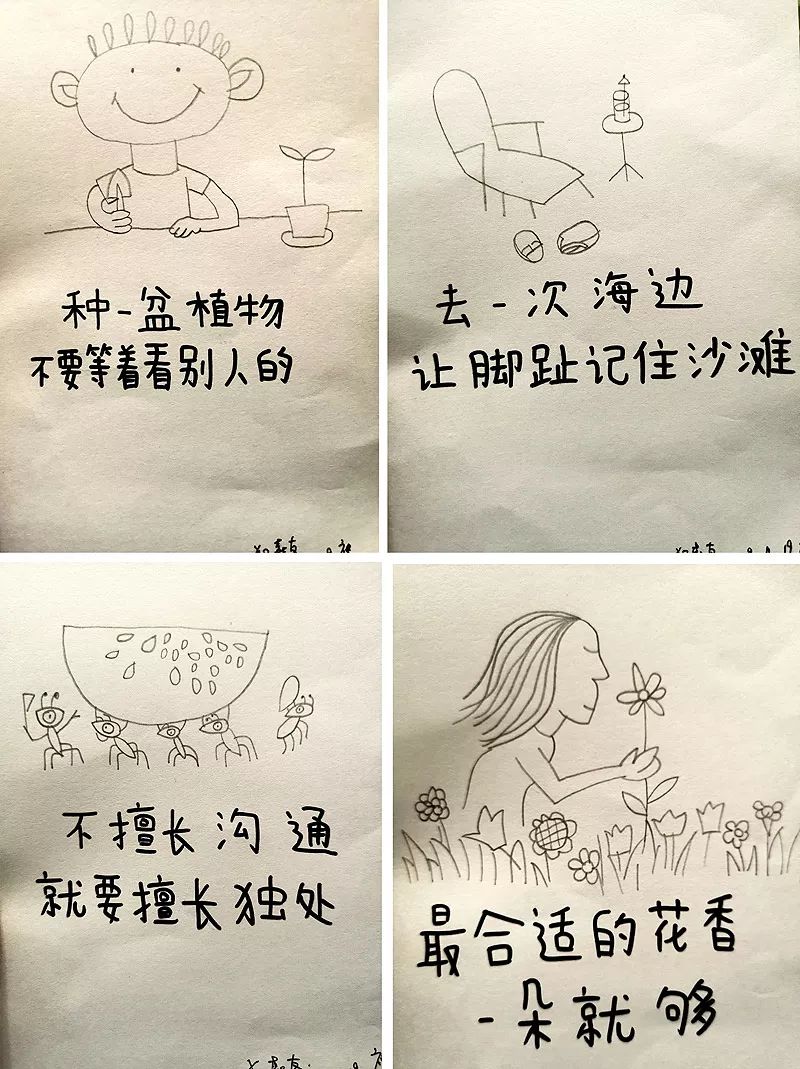 种一盆植物
不要等着看别人的
去一次海边
让脚趾记住沙滩
不擅长沟通
就要擅长独处
最合适的花香
一朵就够